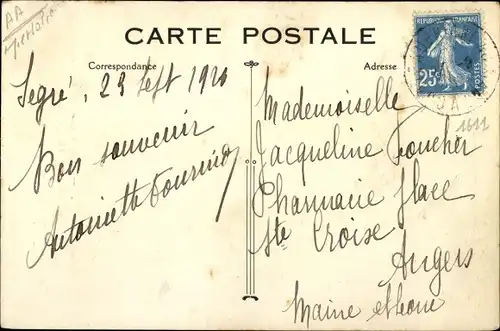 CARTE POSTALE
Correspondance
Adresse
RÉPUBLIQUE FRANÇAISE
25c
POSTES
1611
Segré, 23 Sept 19
Bon souvenir
Antoinette
Mademoiselle
Jacqueline Foucher
Pharmacie place
Ste Croise
Angers
Maine et Loire